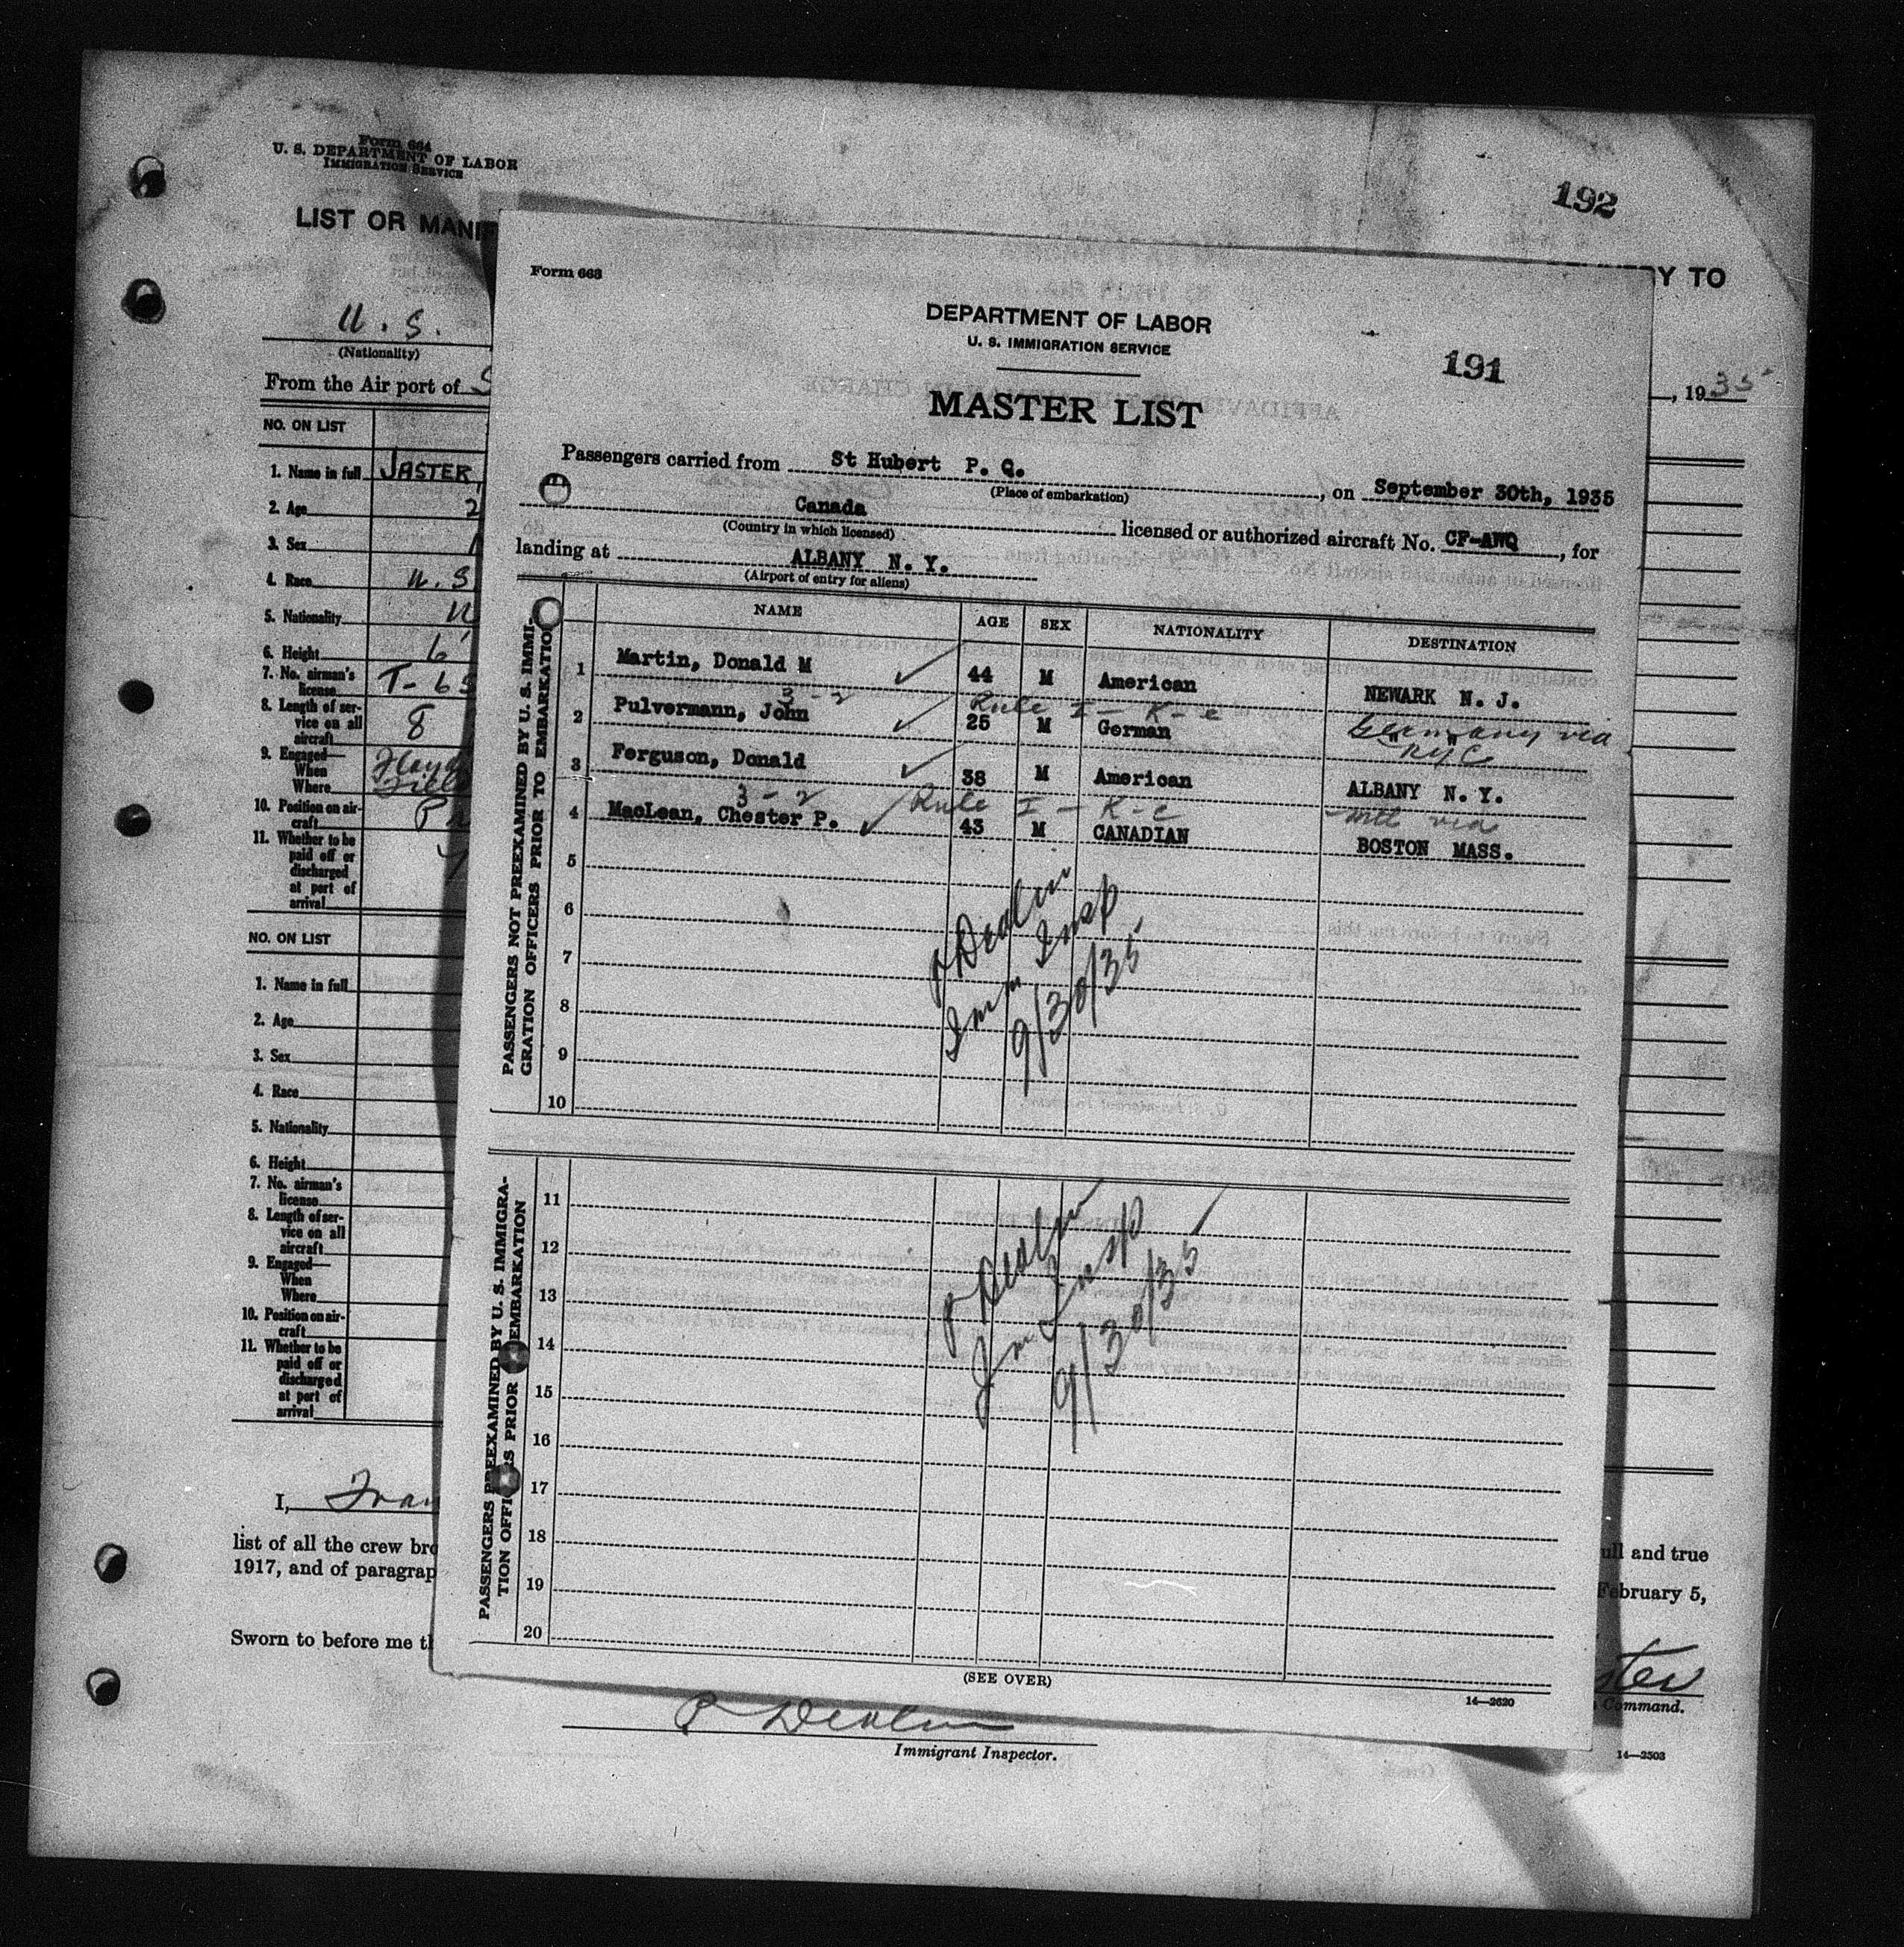 Form 664
U. S. DEPARTMENT OF LABOR
IMMIGRATION SERVICE
192
LIST OR MANI
Y TO
U. S.
(Nationality)
From the Air port of S
, 1935
NO. ON LIST
1. Name in full JASTER,
2. Age 2
3. Sex
4. Race U. S
5. Nationality U
6. Height 6'
7. No. airman's
license T-65
8. Length of ser-
vice on all
aircraft 8
9. Engaged—
When Floyd
Where
10. Position on air-
craft P
11. Whether to be
paid off or
discharged
at port of
arrival
NO. ON LIST
1. Name in full
2. Age
3. Sex
4. Race
5. Nationality
6. Height
7. No. airman's
license
8. Length of ser-
vice on all
aircraft
9. Engaged—
When
Where
10. Position on air-
craft
11. Whether to be
paid off or
discharged
at port of
arrival
I, Fran
list of all the crew bro
ull and true
1917, and of paragrap
February 5,
Sworn to before me th
ster
Command.
14—2503
P Dealm
Immigrant Inspector.
Form 663
DEPARTMENT OF LABOR
U. S. IMMIGRATION SERVICE
191
MASTER LIST
Passengers carried from St Hubert P. Q. , on September 30th, 1935
(Place of embarkation)
Canada licensed or authorized aircraft No. CF-AWQ , for
(Country in which licensed)
landing at ALBANY N. Y.
(Airport of entry for aliens)
PASSENGERS NOT PREEXAMINED BY U. S. IMMI-
GRATION OFFICERS PRIOR TO EMBARKATION
NAME AGE SEX NATIONALITY DESTINATION
1 Martin, Donald M 44 M American NEWARK N. J.
3-2 Rule I - K-e
2 Pulvermann, John 25 M German Germany via
NYC
3 Ferguson, Donald 38 M American ALBANY N. Y.
3-2 Rule I - K-e Mtl via
4 MacLean, Chester P. 43 M CANADIAN BOSTON MASS.
5
6
7
8
9
10
P Dealm
Imm Insp
9/30/35
PASSENGERS PREEXAMINED BY U. S. IMMIGRA-
TION OFFICERS PRIOR EMBARKATION
11
12
13
14
15
16
17
18
19
20
P Dealm
Imm Insp
9/30/35
(SEE OVER)
14—2620